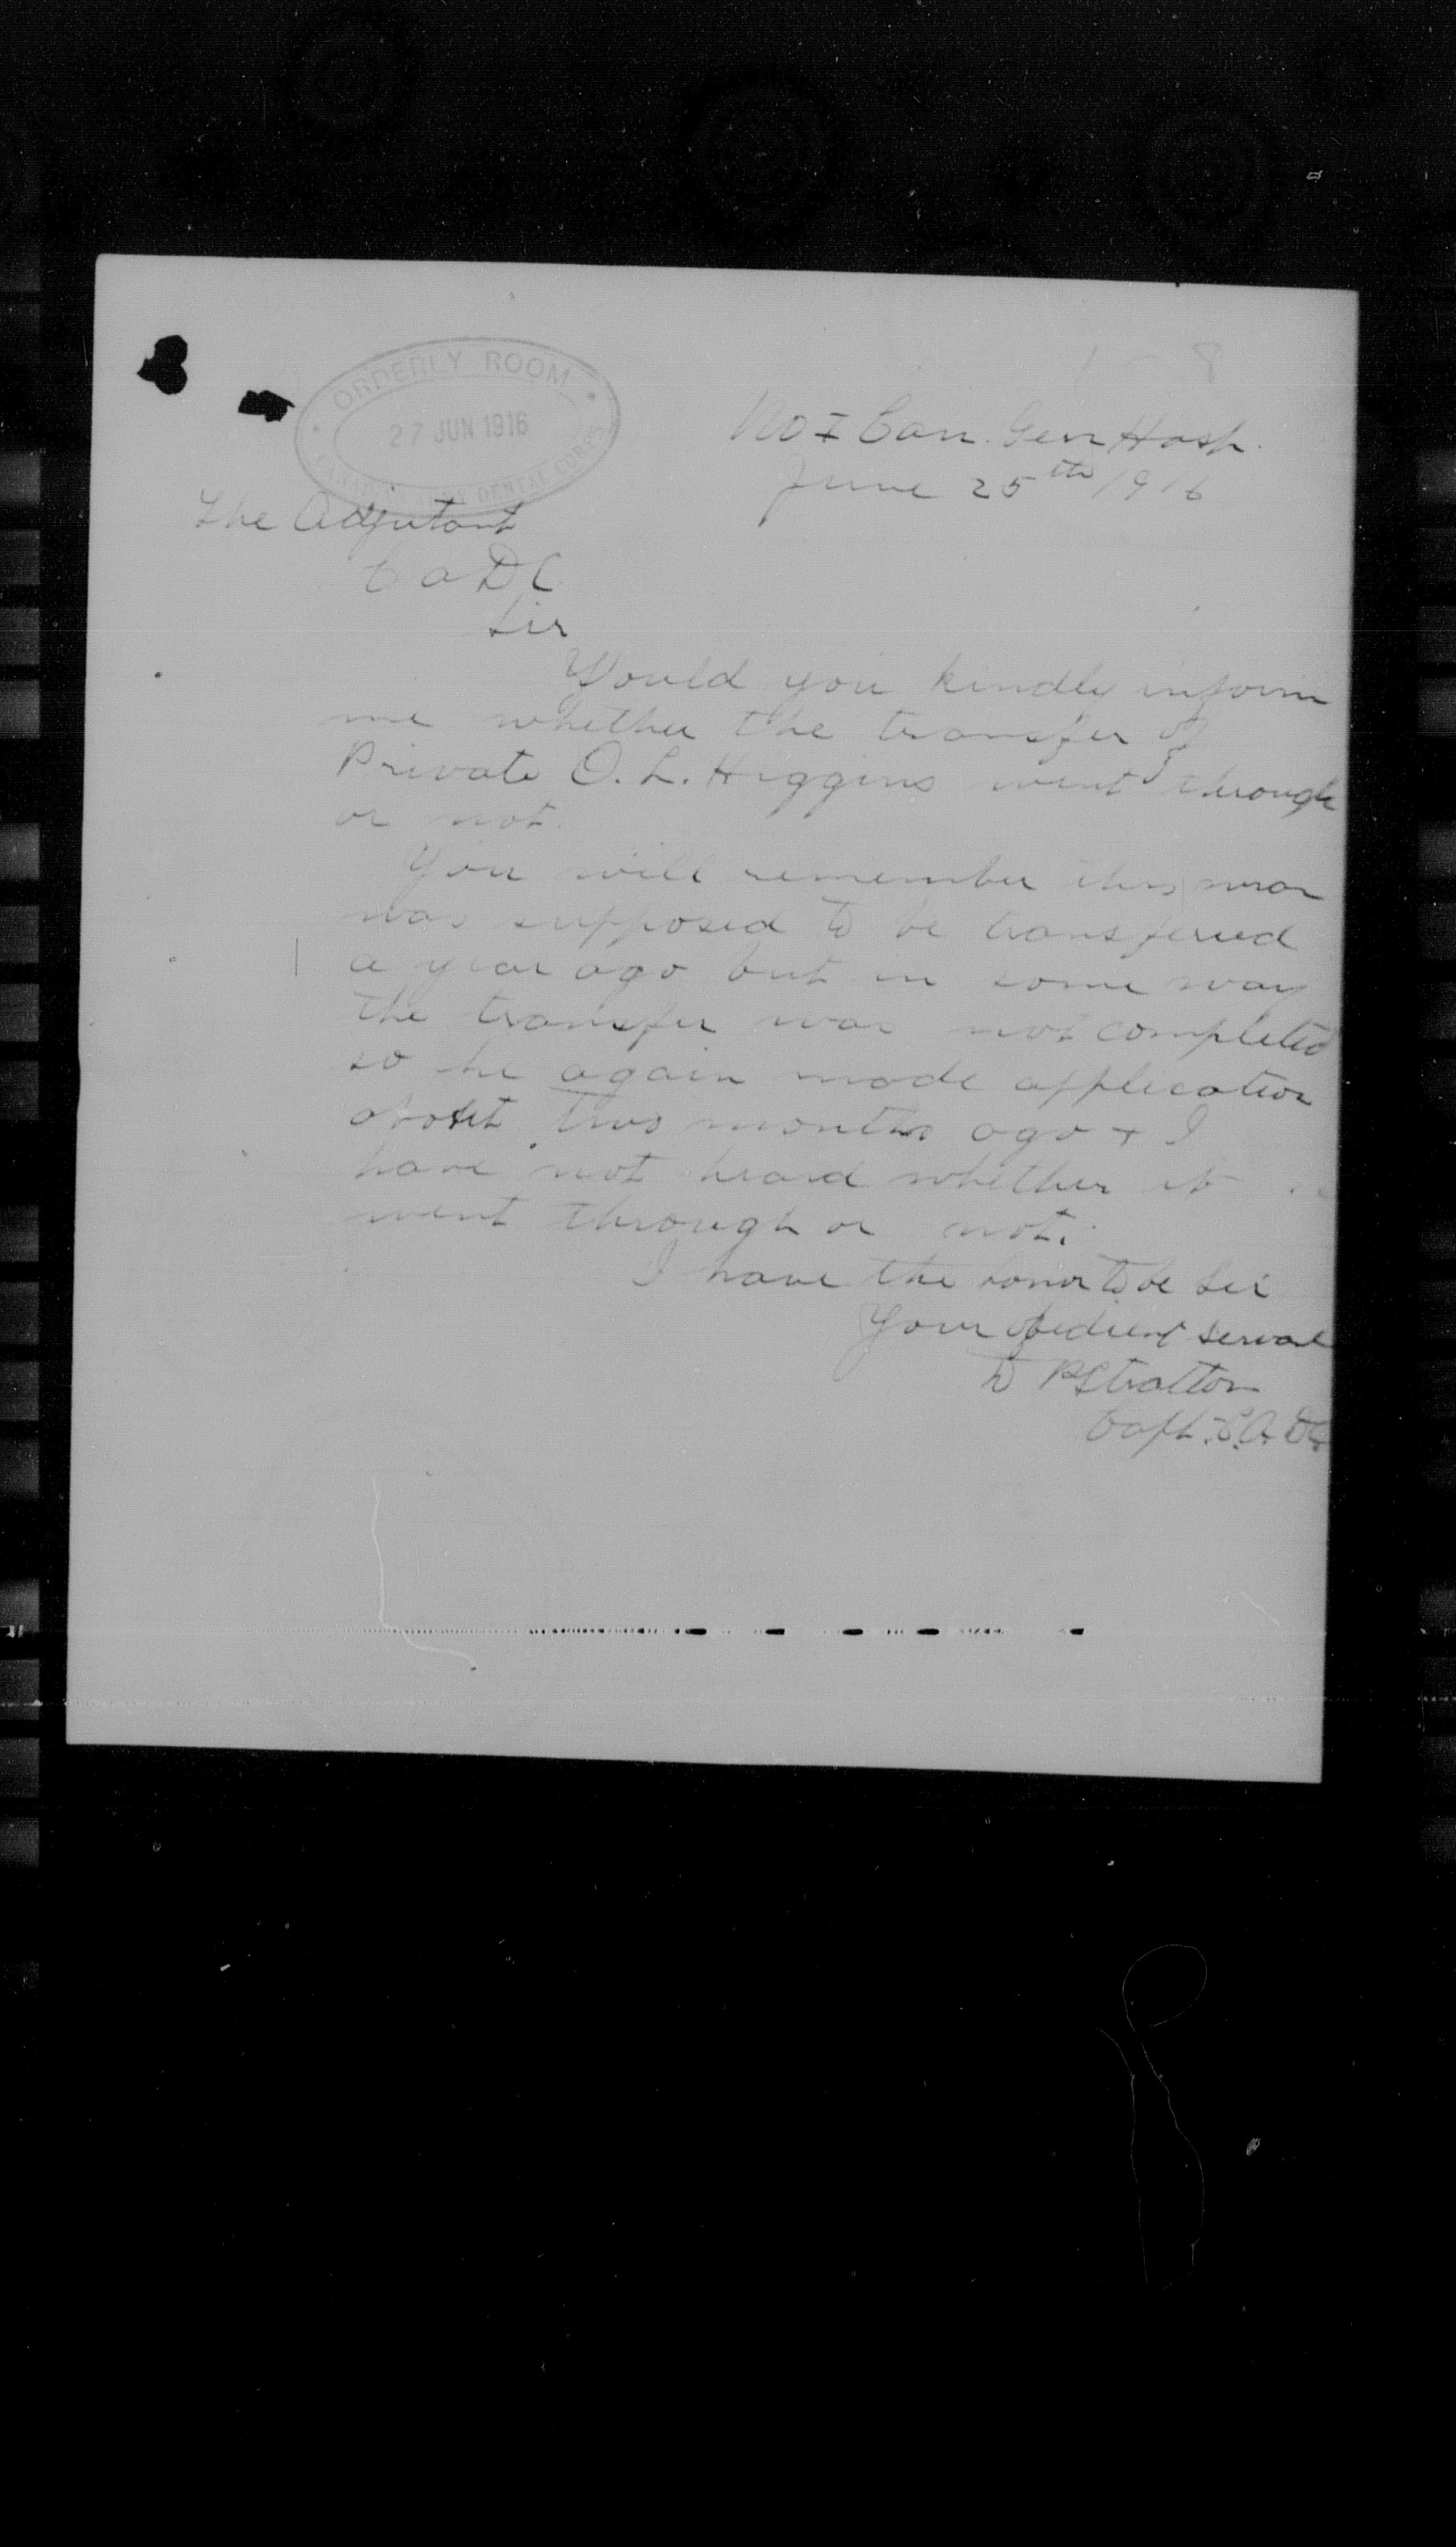 ORDERLY ROOM
27 JUN 1916
CANADIAN ARMY DENTAL CORPS
No I Can. Gen Hosp.
June 25th 1916
The Adjutant
C A D C
Sir
Would you kindly inform
me whether the transfer of
Private O. L. Higgins went through
or not.
You will remember this man
was supposed to be transferred
a year ago but in some way
the transfer was not completed
so he again made application
about two months ago + I
have not heard whether it
went through or not.
I have the honor to be Sir
Your obedient servant
D P Stratton
Capt. C.A.D.C.